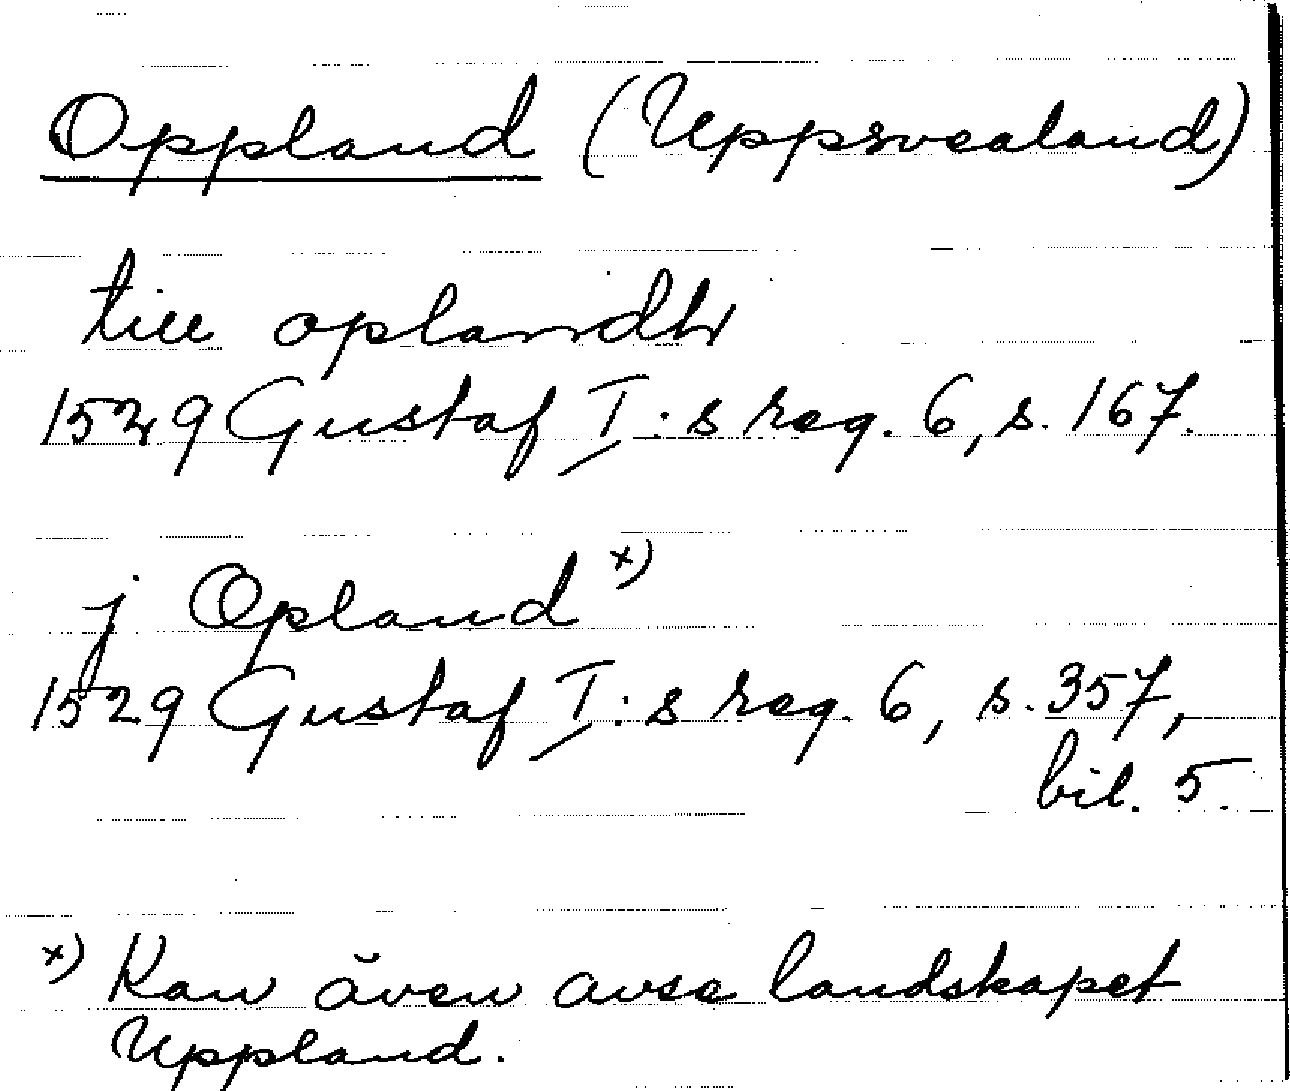 Oppland (Uppsvealand)
till oplandh
1529 Gustaf I:s reg. 6, s. 167.
j Opland x)
1529 Gustaf I:s reg. 6, s. 357,
bil. 5.
x) Kan även avse landskapet
Uppland.